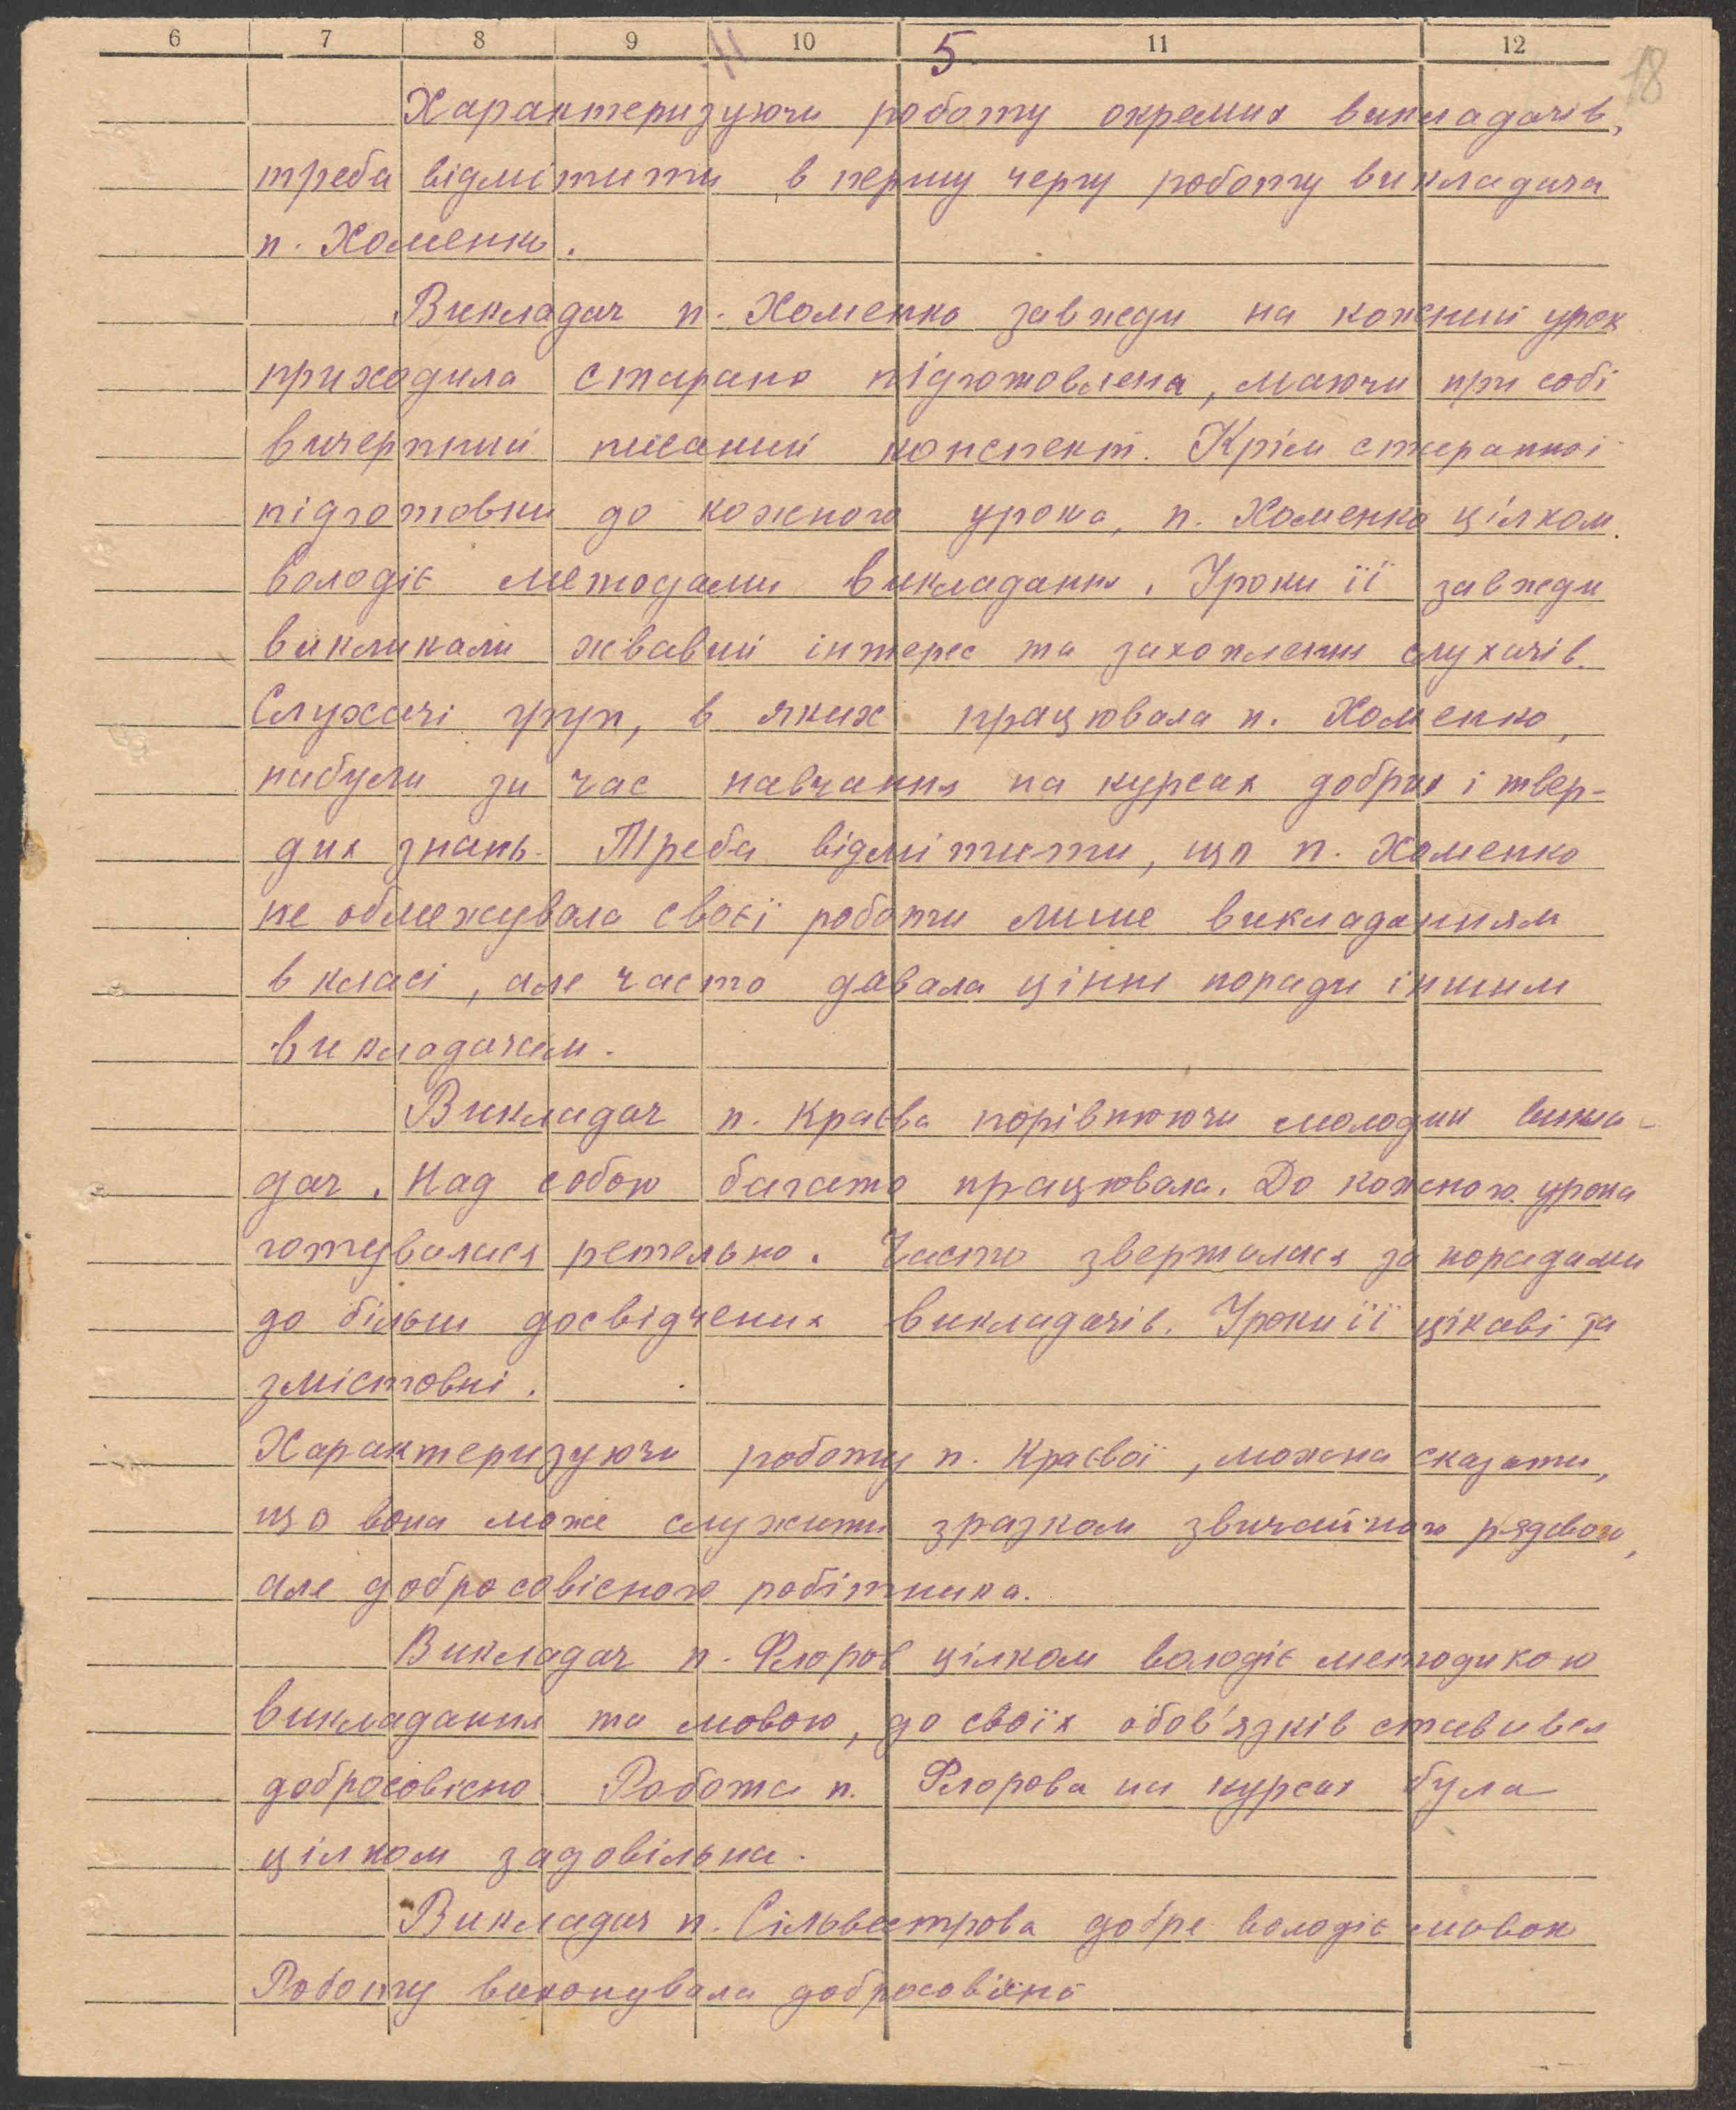 6 7 8 9 10 11 12
5
18
Характеризуючи роботу окремих викладачів,
треба відмітити в першу чергу роботу викладача
п. Хоменко.
Викладач п. Хоменко завжди на кожний урок
приходила старано підготовлена, маючи при собі
вичерпний писаний конспект. Крім старанної
підготовки до кожного урока, п. Хоменко цілком
володіє методами викладання. Уроки її завжди
викликали жвавий інтерес та захоплення слухачів.
Слухачі груп, в яких працювала п. Хоменко,
набули за час навчання на курсах добрих і твер-
дих знань. Треба відмітити, що п. Хоменко
не обмежувала своєї роботи лише викладанням
в класі, але часто давала цінні поради іншим
викладачам.
Викладач п. Краєва порівнюючи молодий викла-
дач. Над собою багато працювала. До кожного урока
готувалася ретельно. Часто зверталася за порадами
до більш досвідчених викладачів. Уроки її цікаві та
змістовні.
Характеризуючи роботу п. Краєвої, можна сказати,
що вона може служити зразком звичайного рядового,
але добросовісного робітника.
Викладач п. Флоров цілком володіє методикою
викладання та мовою, до своїх обов'язків ставився
добросовісно Робота п. Флорова на курсах була
цілком задовільна.
Викладач п. Сільвестрова добре володіє мовою
Роботу виконувала добросовісно